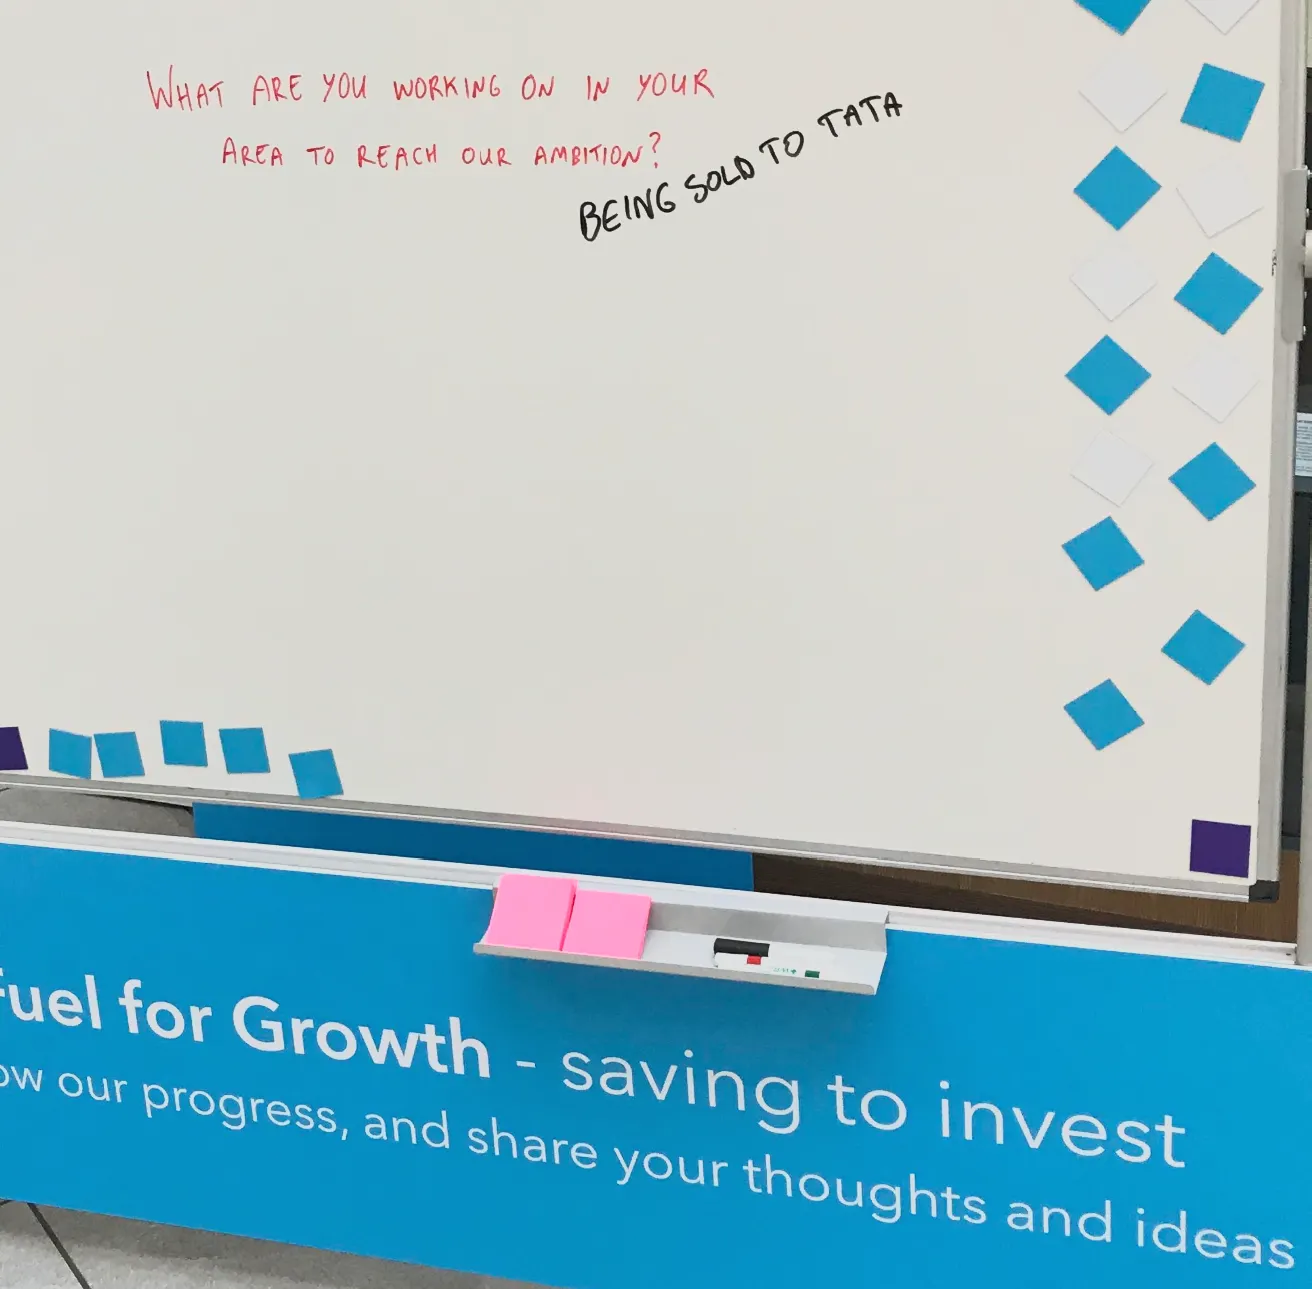 WHAT ARE YOU WORKING ON IN YOUR
AREA TO REACH OUR AMBITION?
BEING SOLD TO TATA
Fuel for Growth - saving to invest
ow our progress, and share your thoughts and ideas